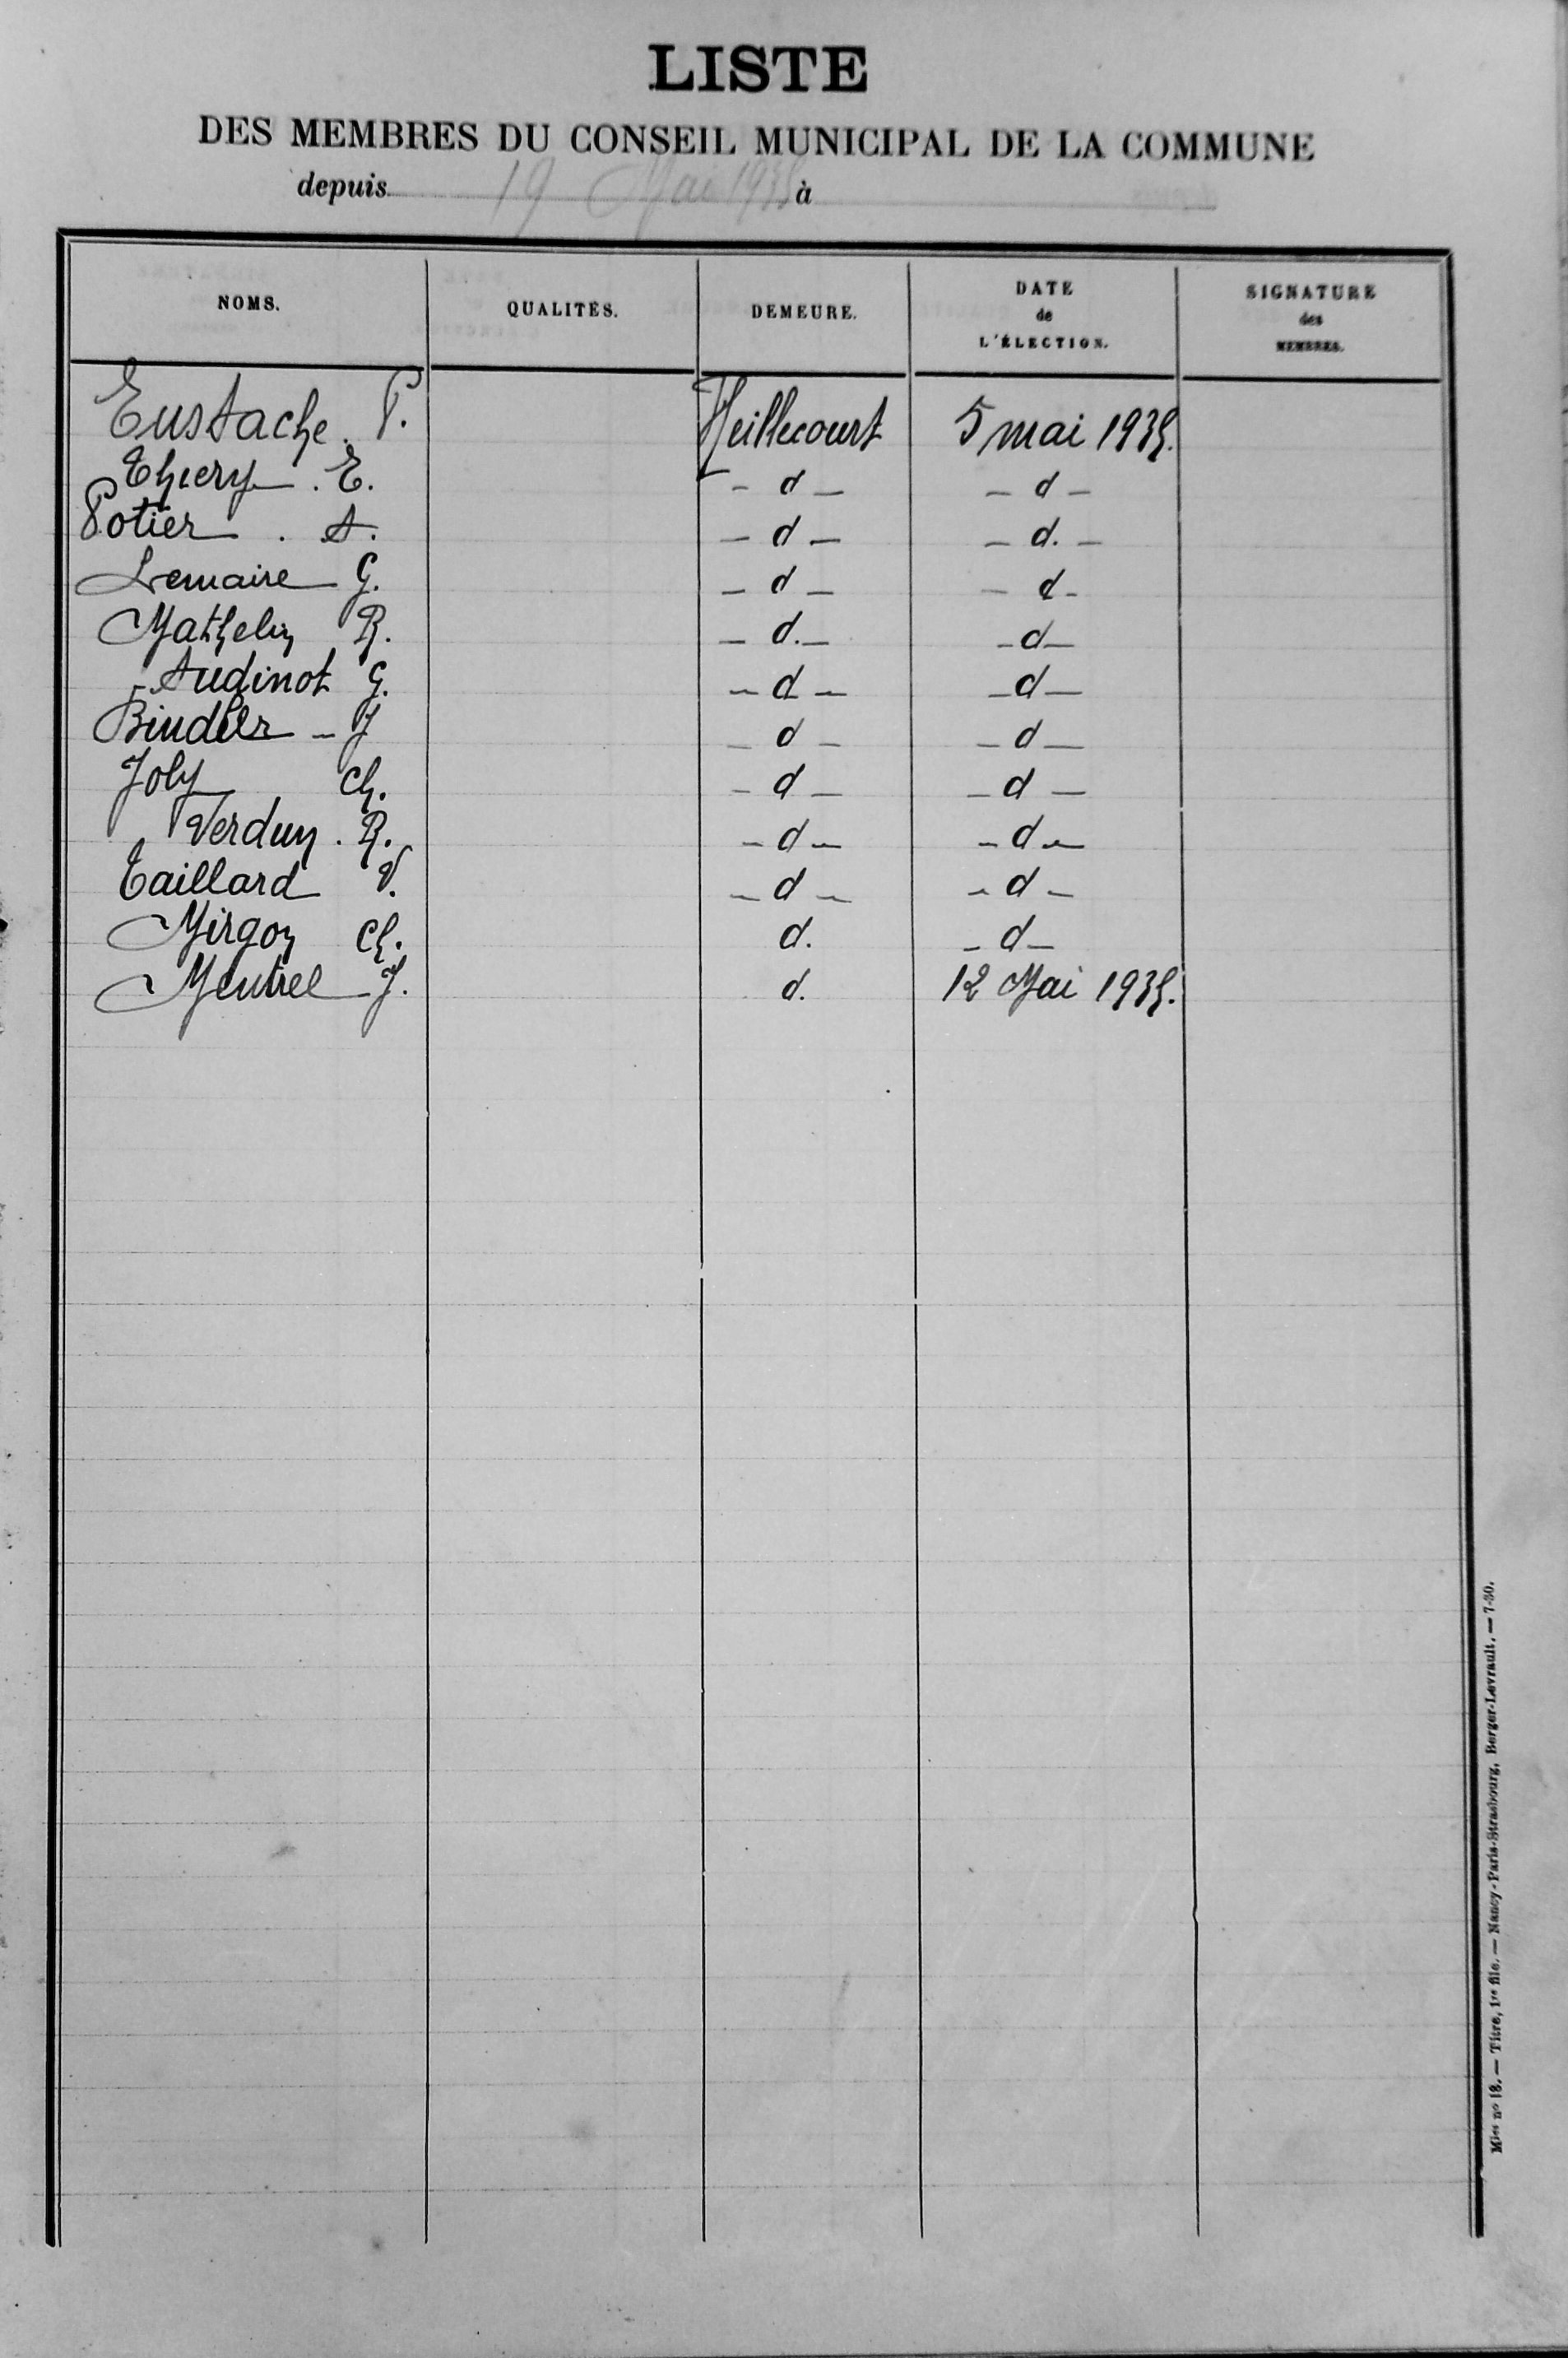 LISTE
DES MEMBRES DU CONSEIL MUNICIPAL DE LA COMMUNE
depuis 19 Mai 1935 à
NOMS. QUALITÉS. DEMEURE. DATE de L'ÉLECTION. SIGNATURE des MEMBRES.
Eustache. P. Heillecourt 5 mai 1935.
Thiery . E. - d - - d -
Potier . A. - d - - d. -
Lemaire G. - d - - d -
Mathelin R. - d. - - d -
Audinot G. - d - - d -
Bindler - J - d - - d -
Joly Ch. - d - - d -
Verdun . R. - d - - d -
Taillard V. - d - - d -
Mirgon Ch. d. - d -
Mentrel J. d. 12 Mai 1935.
Mies no 18. — Titre, 1re flle. — Nancy-Paris-Strasbourg, Berger-Levrault. — 7-30.